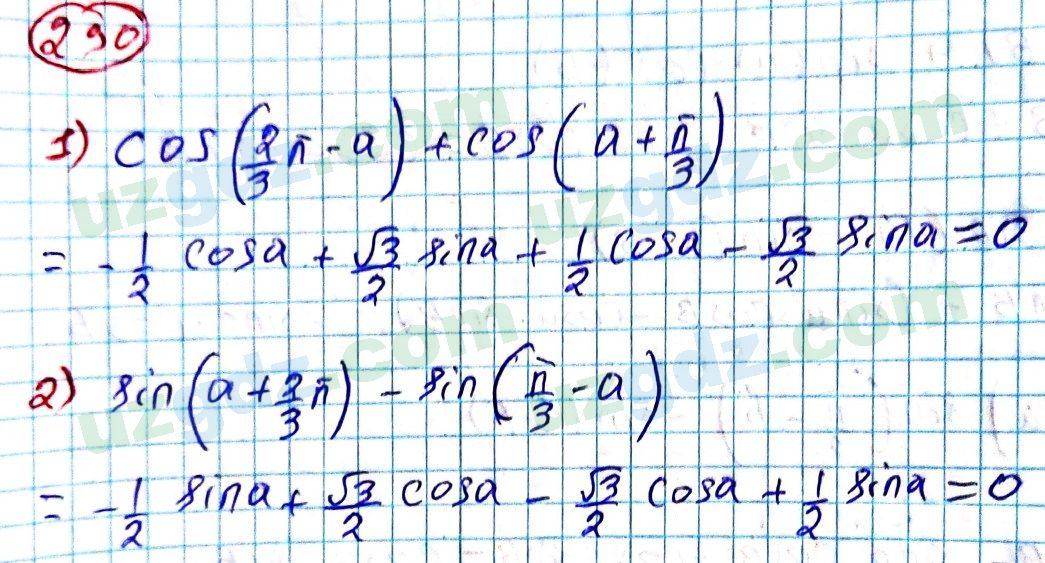 290
1) cos(2/3 π - a) + cos(a + π/3)
= - 1/2 cosa + √3/2 sina + 1/2 cosa - √3/2 sina = 0
2) sin(a + 2/3 π) - sin(π/3 - a)
= - 1/2 sina + √3/2 cosa - √3/2 cosa + 1/2 sina = 0
uzgdz.com
uzgdz.com
uzgdz.com
uzgdz.com